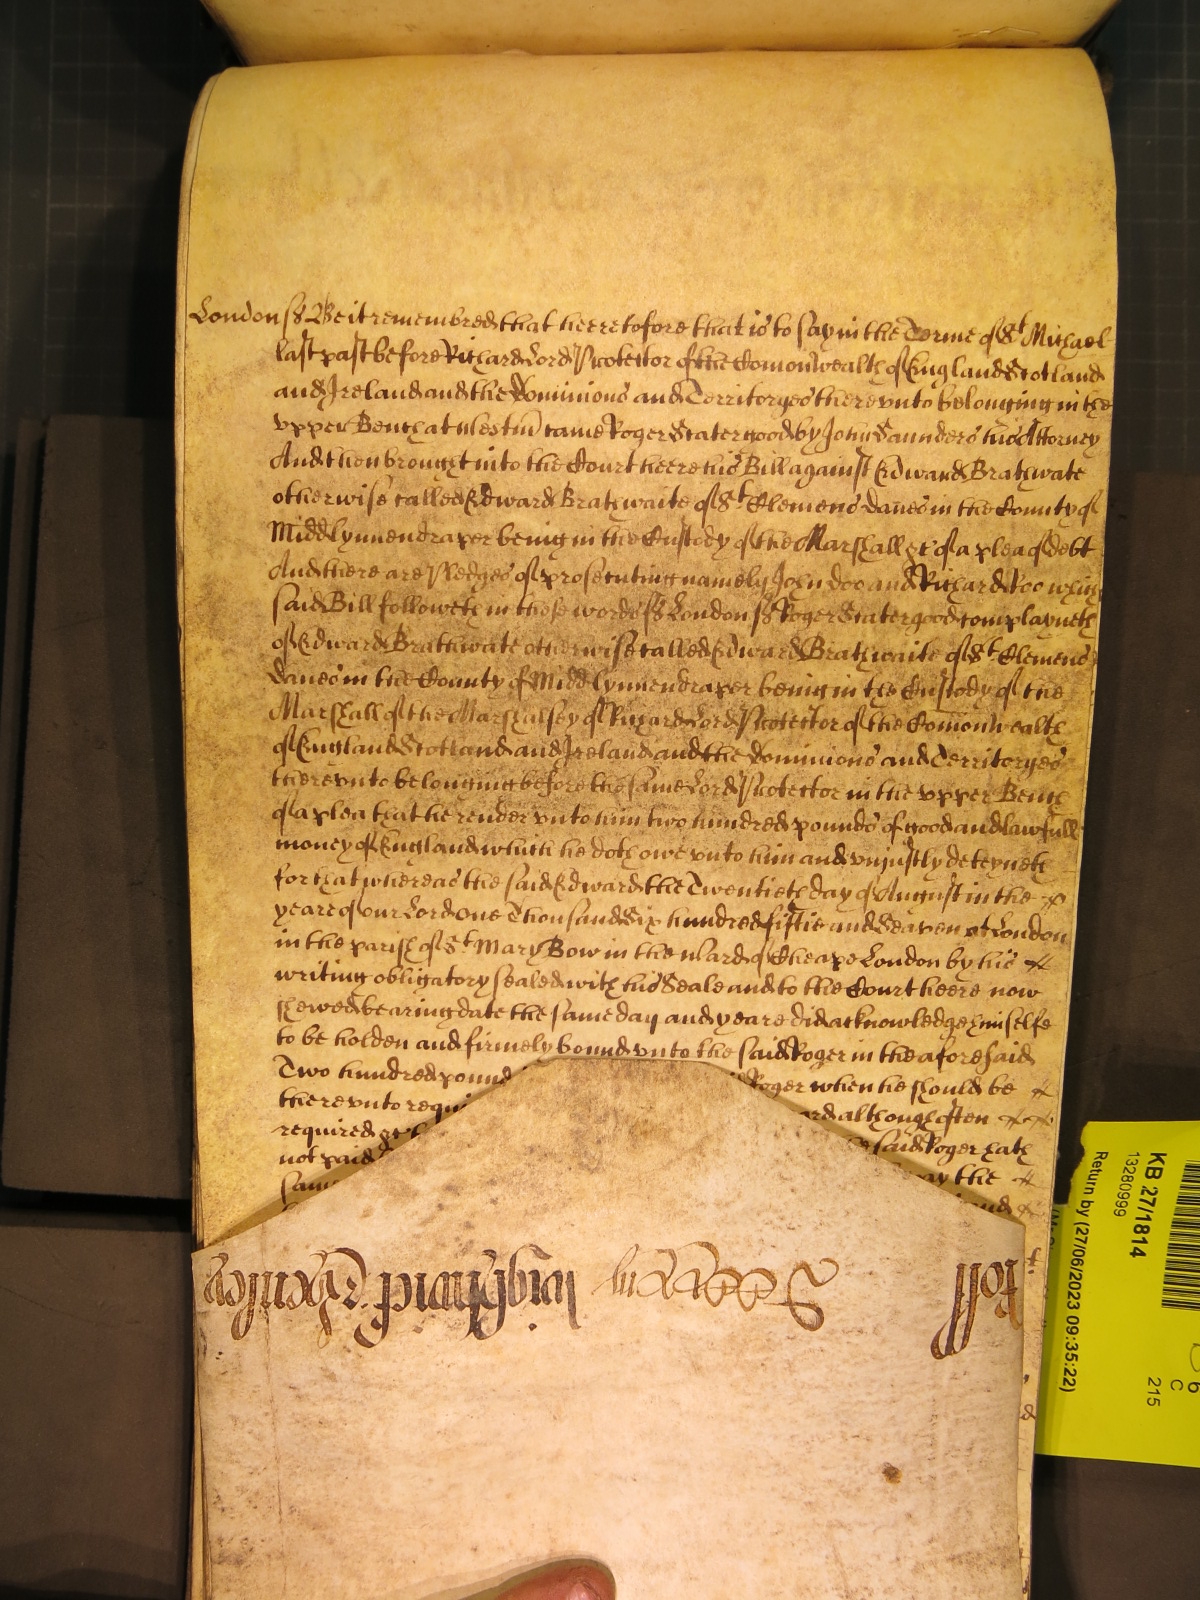 London ss Be it remembred that heeretofore that is to say in the Terme of St Michael
last past before Richard Lord Protector of the Comonwealth of England Scotland
and Ireland and the Dominions and Territoryes therevnto belonging in the
vpper Bench at Westmr came Roger Statergood by John Saunders his Attorney
And then brought into the Court heere his Bill against Edward Brathwate
otherwise called Edward Brathwaite of St Clemens Danes in the County of
Midd lynnendraper being in the Custody of the Marshall &c of a plea of debt
And there are Pledges of prosecuting namely John Doo and Richard Roo which
said Bill followeth in these words ss London ss Roger Statergood complayneth
of Edward Brathwate otherwise called Edward Brathwaite of St Clemens
Danes in the County of Midd lynnendraper being in the Custody of the
Marshall of the Marshalsey of Richard Lord Protector of the Comonwealth
of England Scotland and Ireland and the Dominions and Territoryes
therevnto belonging before the same Lord Protector in the vpper Bench
of a plea that he render vnto him two hundred pounds of good and lawfull
money of England which he doth owe vnto him and vniustly deteyneth
for that whereas the said Edward the Twentieth day of August in the
yeare of our Lord One Thousand Six hundred fiftie and Seaven at London
in the parish of St Mary Bow in the Ward of Cheape London by his
writing obligatory sealed with his Seale and to the Court heere now
shewed bearing date the same day and yeare did acknowledge himselfe
to be holden and firmely bound vnto the said Roger in the aforesaid
Two hundred pound Roger when he should be
therevnto requi ard although often
required &c said Roger hath
not paid ay the
same and
Roll
KB 27/1814
13280999
Return by (27/06/2023 09:35:22)
6
C
215